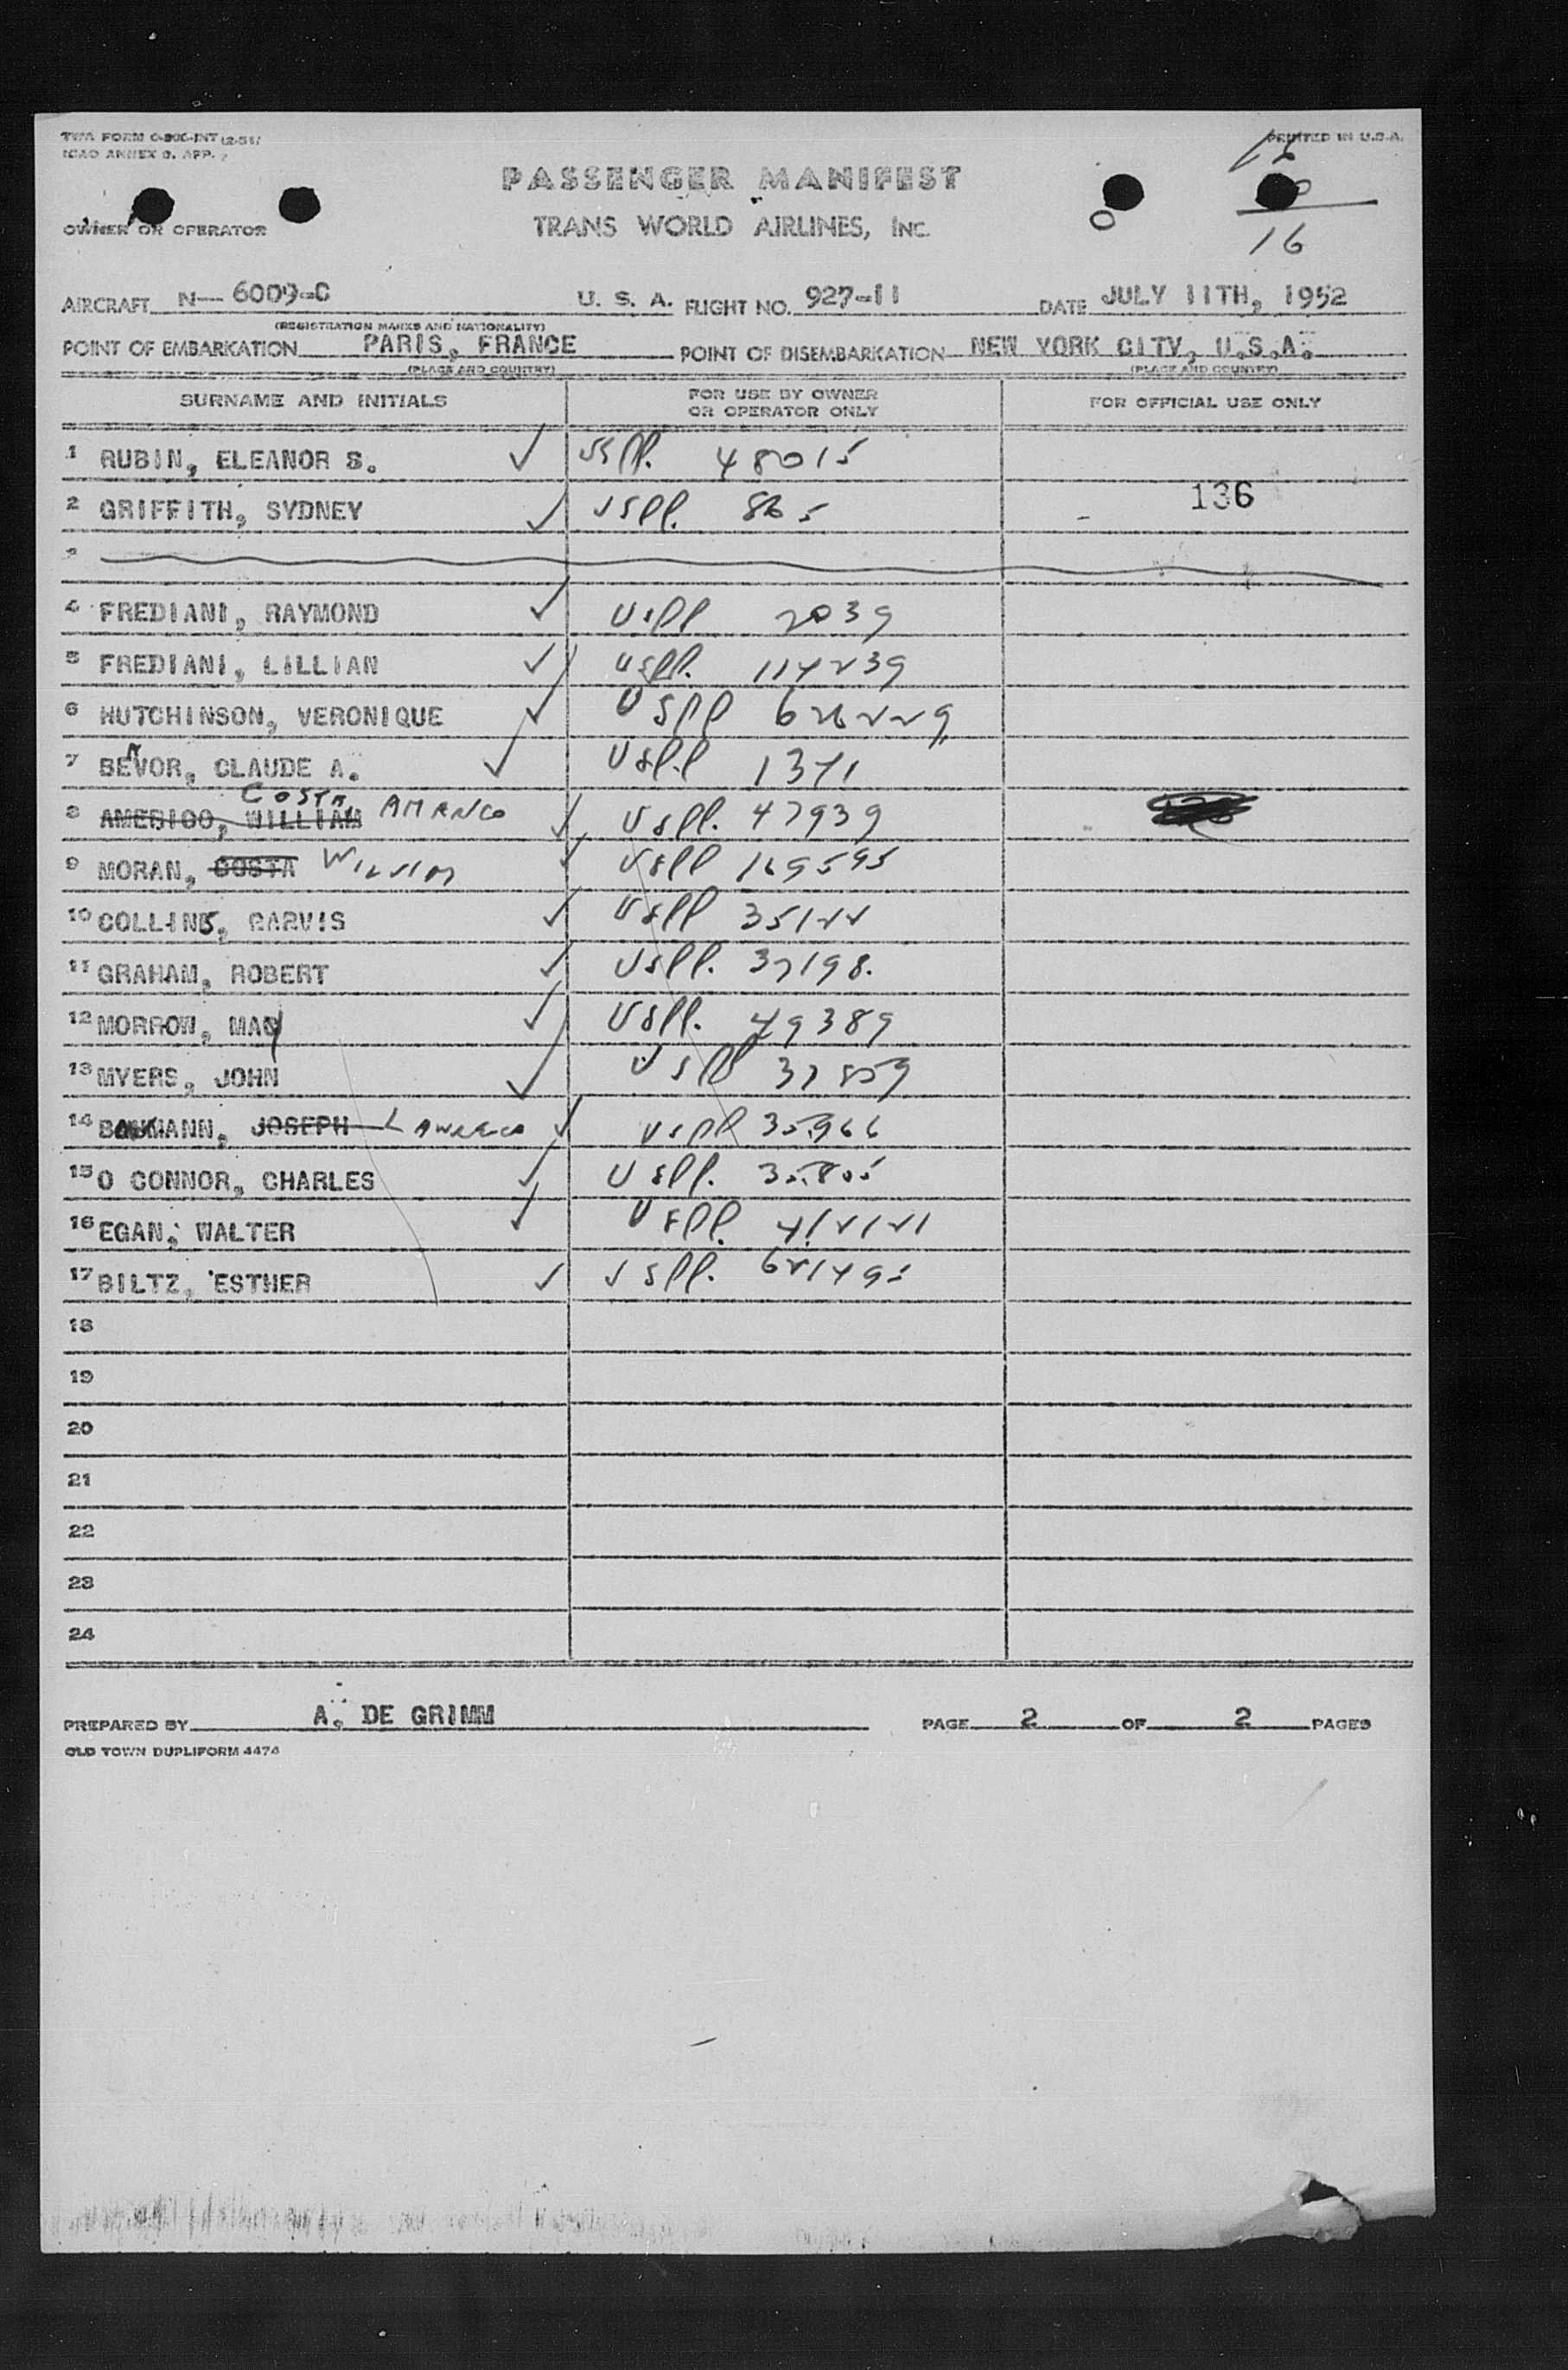 TWA FORM O-806-INT (2-51)
ICAO ANNEX 9. APP.
PRINTED IN U.S.A.
PASSENGER MANIFEST
OWNER OR OPERATOR TRANS WORLD AIRLINES, INC.
16
AIRCRAFT N- 6009-C U. S. A. FLIGHT NO. 927-11 DATE JULY 11TH, 1952
(REGISTRATION MARKS AND NATIONALITY)
POINT OF EMBARKATION PARIS, FRANCE POINT OF DISEMBARKATION NEW YORK CITY, U.S.A.
(PLACE AND COUNTRY) (PLACE AND COUNTRY)
SURNAME AND INITIALS FOR USE BY OWNER OR OPERATOR ONLY FOR OFFICIAL USE ONLY
1 RUBIN, ELEANOR S. USPP. 48015
2 GRIFFITH, SYDNEY USPP. 865 136
3
4 FREDIANI, RAYMOND USPP 2039
5 FREDIANI, LILLIAN USPP. 114239
6 HUTCHINSON, VERONIQUE USPP 626229
7 BEVOR, CLAUDE A. USPP 1371
8 AMERICO, WILLIAM COSTA, USPP. 47939
9 MORAN, COSTA USPP 169595
10 COLLINS, PARVIS USPP 35122
11 GRAHAM, ROBERT USPP. 37198.
12 MORROW, MAY USPP. 49389
13 MYERS, JOHN USPP 37859
14 JOSEPH USPP 35966
15 O CONNOR, CHARLES USPP. 35805
16 EGAN, WALTER USPP.
17 BILTZ, ESTHER USPP. 621495
18
19
20
21
22
23
24
PREPARED BY A. DE GRIMM PAGE 2 OF 2 PAGES
OLD TOWN DUPLIFORM 4474